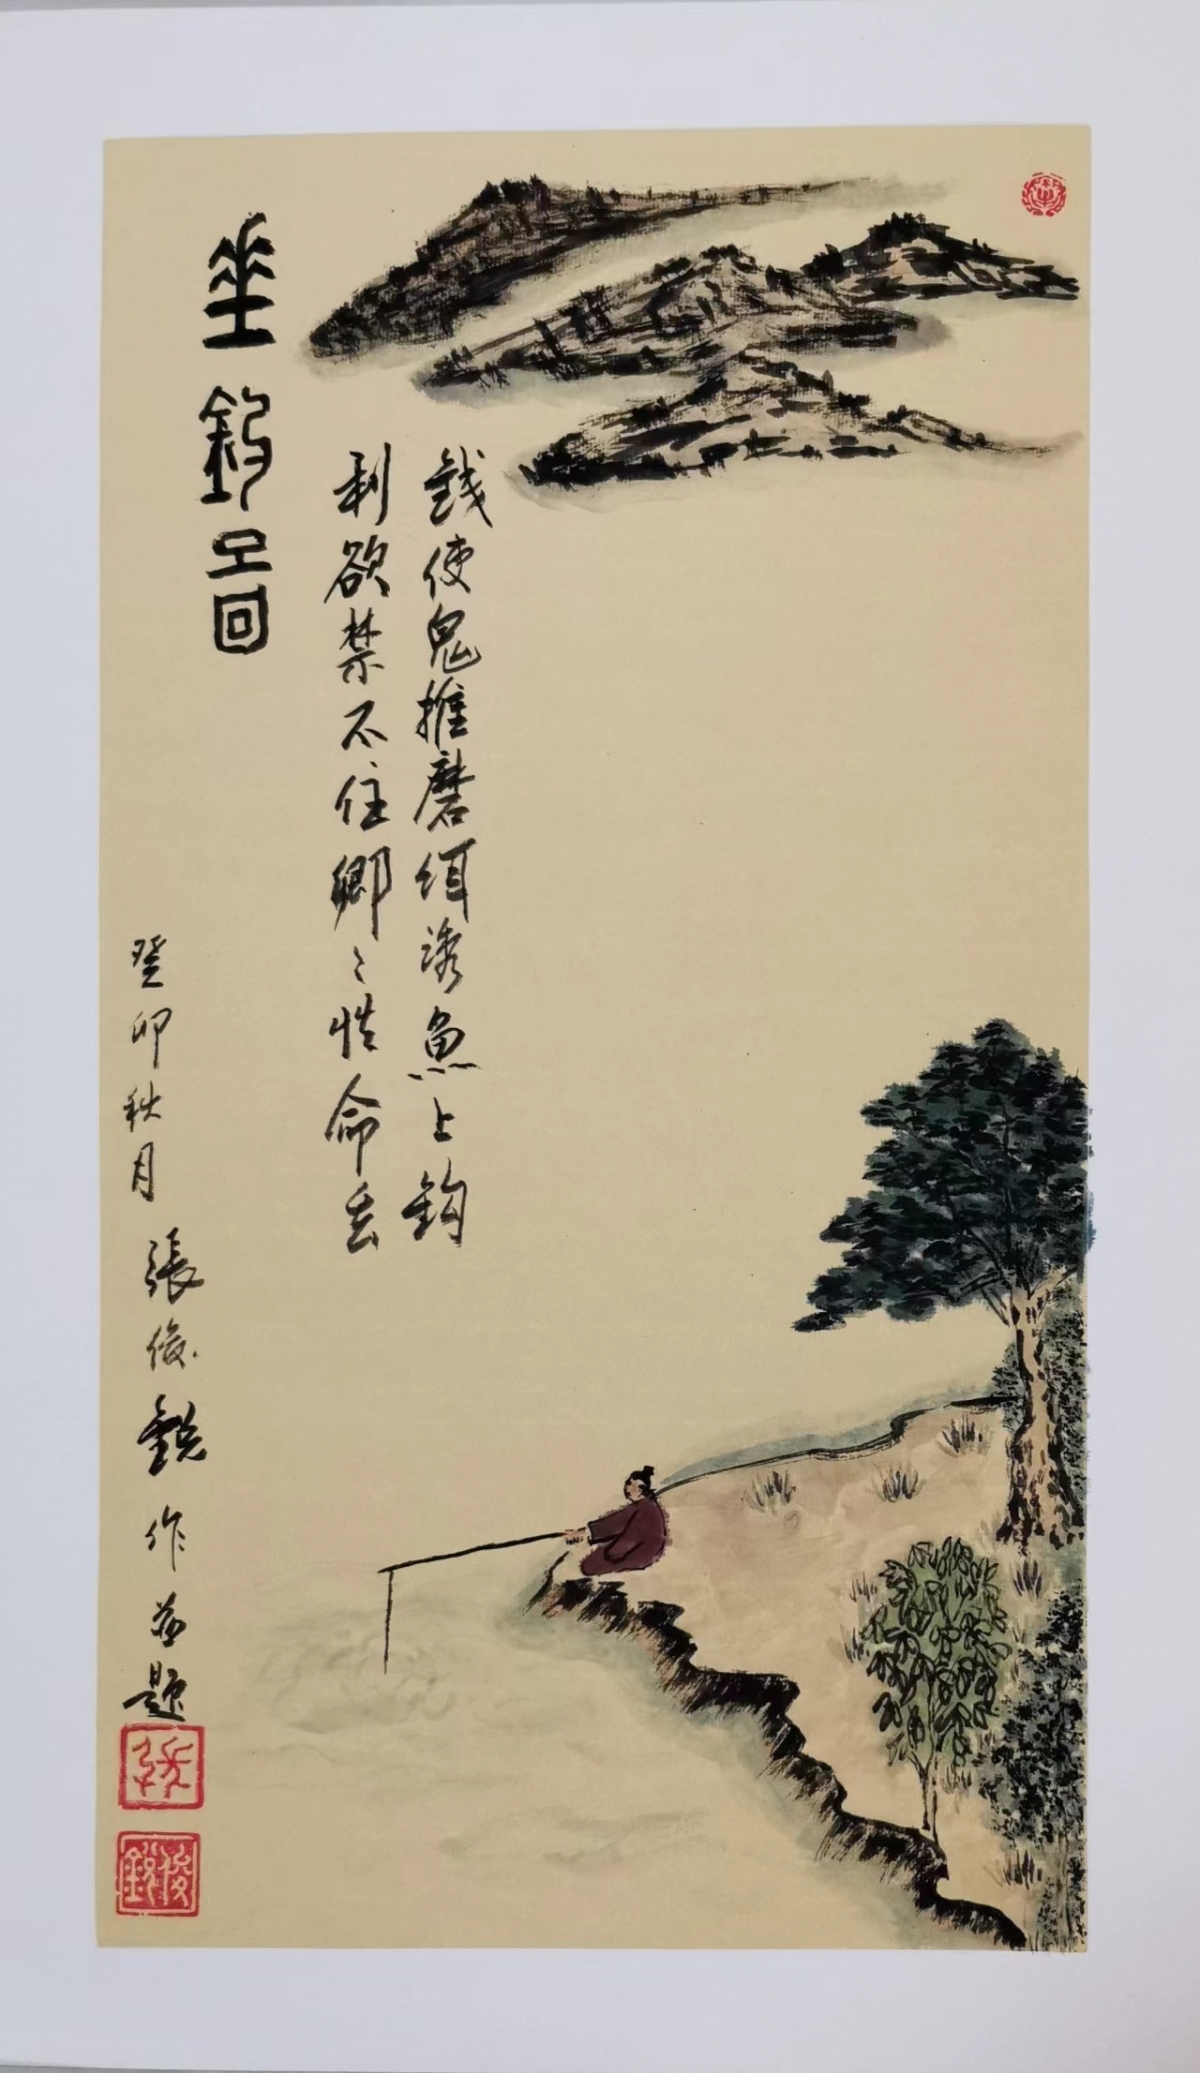 錢使鬼推磨餌誘魚上鈎
利欲禁不住卿〻性命丢
垂釣圖
癸卯秋月張俊銳作並題
俊銳